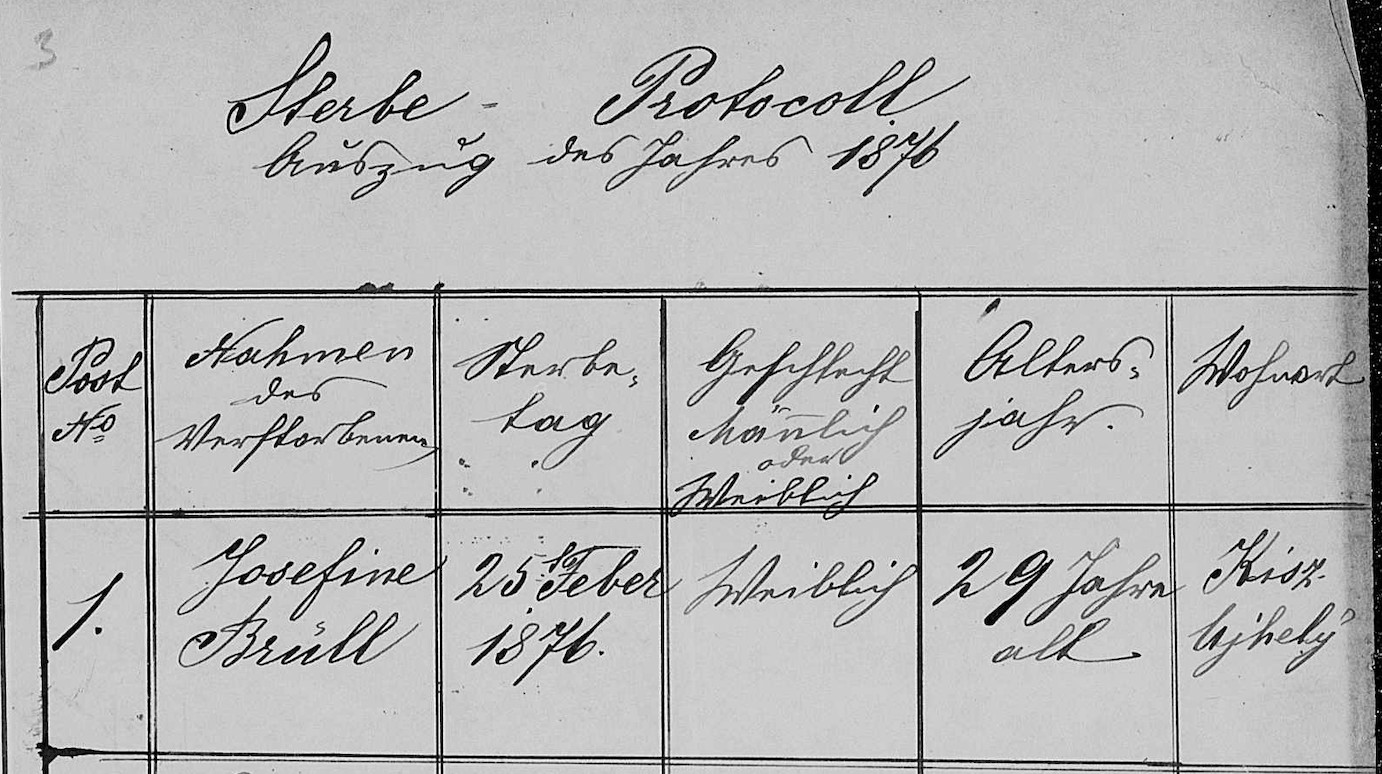 3
Sterbe - Protocoll
Auszug des Jahres 1876
Post
No
Nahmen
des
Verstorbenen
Sterbe-
tag
Geschlecht
Männlich
oder
Weiblich
Alters-
jahr.
Wohnort
1.
Josefine
Brüll
25t Feber
1876.
Weiblich
29 Jahre
alt
Kisz-
Ujhely